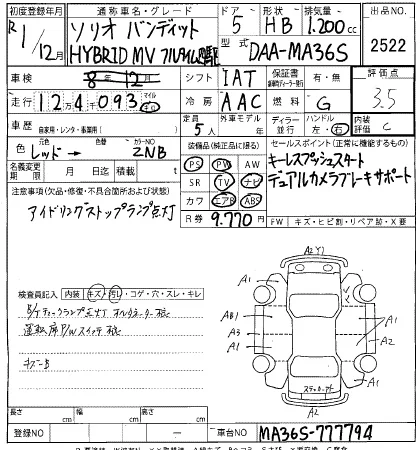 初度登録年月 通称車名・グレード ドア 形状 排気量 出品NO
R 1/12月 ソリオ バンディット 5 HB 1.200cc
HYBRID MV フルタイム 型式 DAA-MA36S 2522
車検 8年12月 シフト IAT 保証書 有・無 評価点
走行 124093 マイル キロ 冷房 AAC 燃料 G 3.5
車歴 自家用・レンタ・事業用( ) 定員 5人 外車モデル 年 ディーラー 並行 ハンドル 左・右 内装評価 C
色 元色 レッド→ 色替 カラーNO ZNB 装備品(純正品に限る) セールスポイント(正常に機能するもの)
名義変更期限 月 日 積載 t PS PW AW キーレスプッシュスタート
注意事項(欠品・修復・不具合箇所および状態) SR TV ナビ デュアルカメラブレーキサポート
アイドリングストップランプ点灯 カワ エアB ABS
R券 9.770円 FW キズ・ヒビ割・リペア跡・X要
検査員記入 内装 キズ・汚レ・コゲ・穴・スレ・キレ
運転席P/Wスイッチ
A2Y1
A1
A1
AB1
A3
A1
A1
A2
A1
A2
長さ cm 幅 cm 高さ cm
登録NO ー 車台NO MA36S-777794